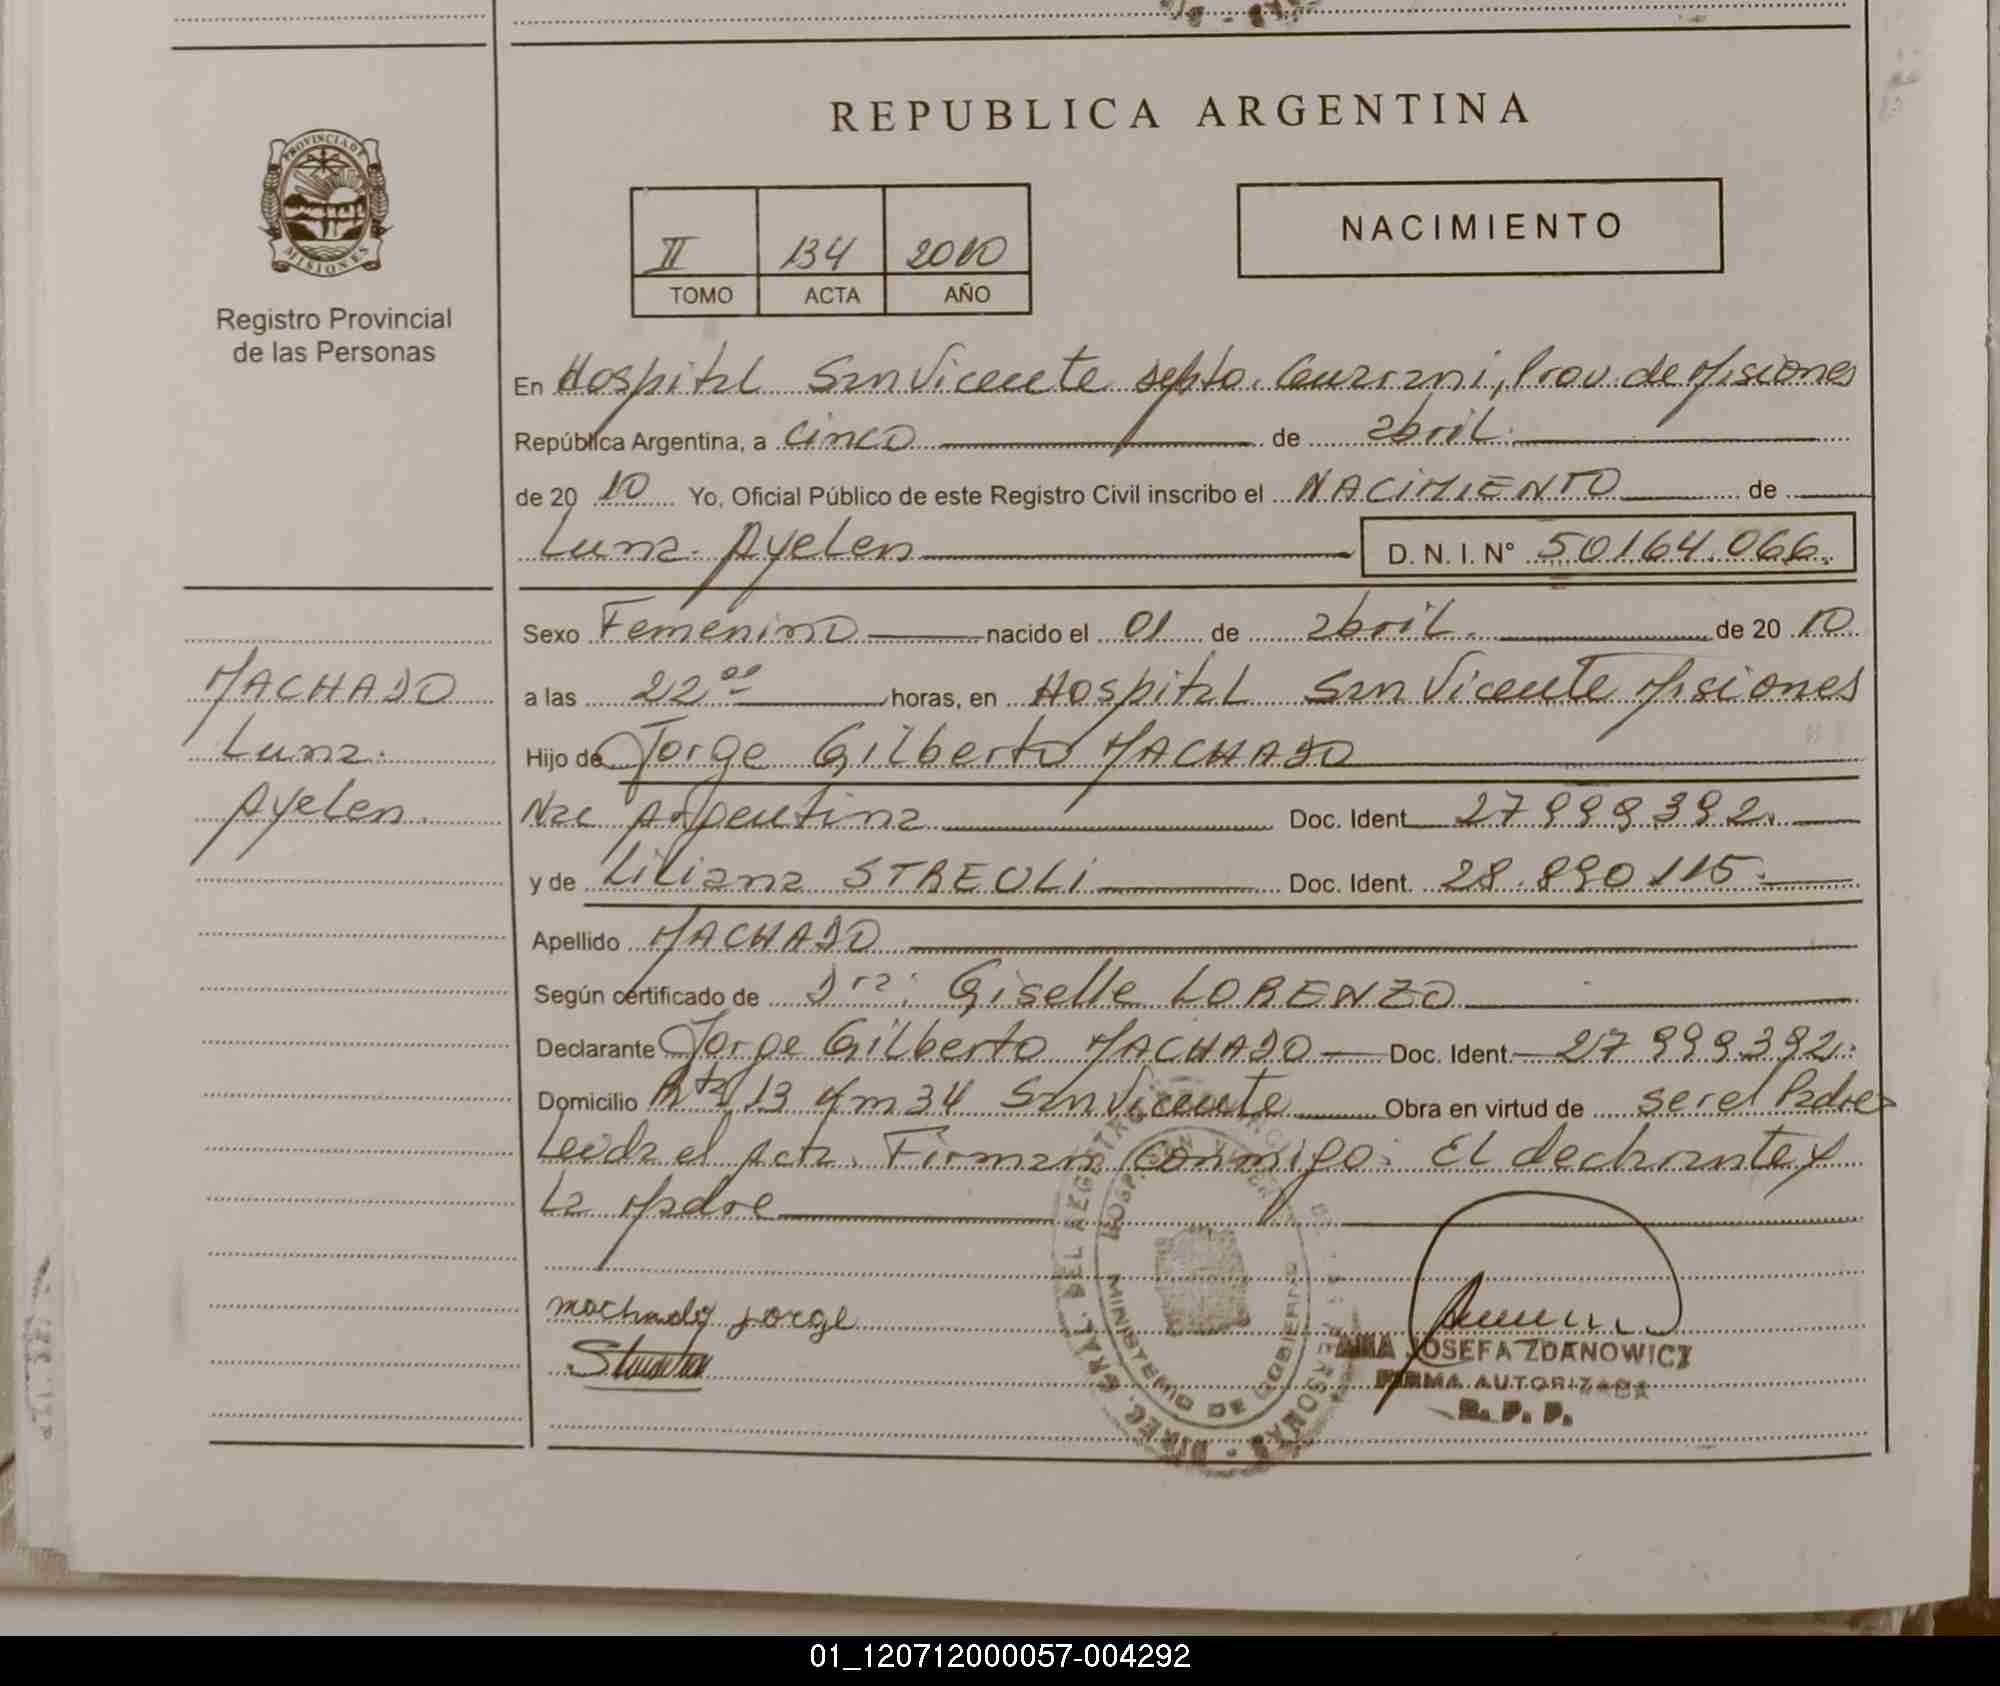 REPUBLICA ARGENTINA
PROVINCIA DE
MISIONES
Registro Provincial
de las Personas
II 134 2010
TOMO ACTA AÑO
NACIMIENTO
En Hospital San Vicente Depto. Guarani, Prov. de Misiones
República Argentina, a cinco de abril.
de 20 10 Yo, Oficial Público de este Registro Civil inscribo el NACIMIENTO de
Luna Ayelen D. N. I. N° 50164.066.
Sexo Femenino nacido el 01 de abril. de 20 10
a las 22 00 horas, en Hospital San Vicente Misiones
Hijo de Jorge Gilberto MACHADO
Nac Argentina Doc. Ident 27999392.
y de Liliana STREULI Doc. Ident. 28.890.115.
Apellido MACHADO
Según certificado de Dra: Giselle LORENZO
Declarante Jorge Gilberto MACHADO Doc. Ident 27999392.
Domicilio Rta 13 Km 34 San Vicente Obra en virtud de ser el Padre
Leida el Acta. Firman conmigo: El declarante y
la Madre
MACHADO
Luna
Ayelen
machado jorge
DIREC. GRAL. DEL REGISTRO
PERSONAS
MINISTERIO DE GOBIERNO
ANA JOSEFA ZDANOWICZ
FIRMA AUTORIZADA
R. P. P.
01_120712000057-004292